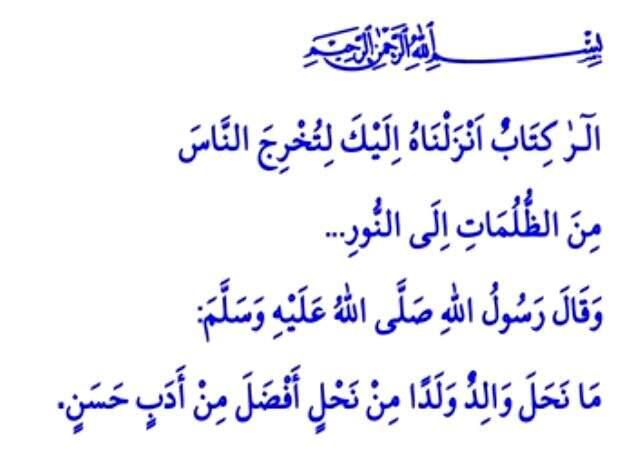 بِسْمِ اللهِ الرَّحْمٰنِ الرَّحِيمِ
الٓرٰ كِتَابٌ اَنْزَلْنَاهُ اِلَيْكَ لِتُخْرِجَ النَّاسَ
مِنَ الظُّلُمَاتِ اِلَى النُّورِ...
وَقَالَ رَسُولُ اللهِ صَلَّى اللهُ عَلَيْهِ وَسَلَّمَ:
مَا نَحَلَ وَالِدٌ وَلَدًا مِنْ نَحْلٍ أَفْضَلَ مِنْ أَدَبٍ حَسَنٍ.